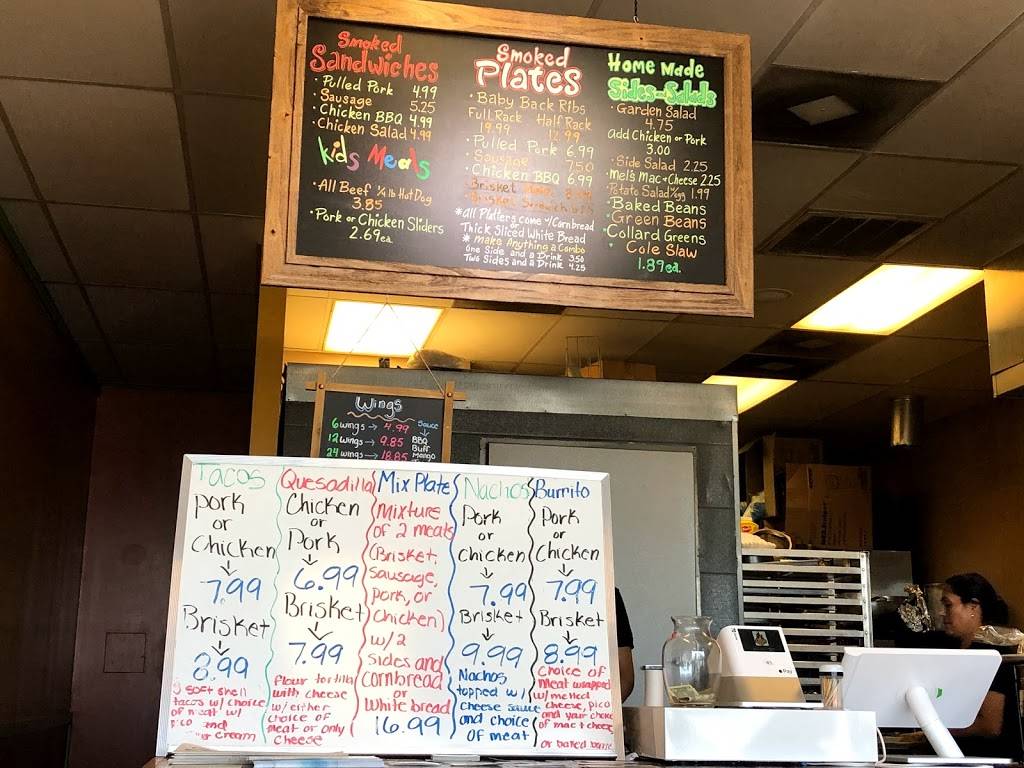 Smoked
Sandwiches
• Pulled Pork 4.99
• Sausage 5.25
• Chicken BBQ 4.99
• Chicken Salad 4.99
Kids Meals
• All Beef ¼ lb Hot Dog
3.85
• Pork or Chicken Sliders
2.69ea.
Smoked
Plates
• Baby Back Ribs
Full Rack Half Rack
19.99 12.99
• Pulled Pork 6.99
• Sausage 7.50
• Chicken BBQ 6.99
• Brisket
• Brisket Sandwich
* All Platters come w/Cornbread
or
Thick Sliced White Bread
* make Anything a Combo
One Side and a Drink 3.50
Two Sides and a Drink 4.25
Home Made
Sides and Salads
• Garden Salad
4.75
add Chicken or Pork
3.00
• Side Salad 2.25
Mel's Mac & Cheese 2.25
• Potato Salad w/egg 1.99
• Baked Beans
• Green Beans
• Collard Greens
• Cole Slaw
1.89ea.
Wings
6 wings → 4.99
12 wings → 9.85
24 wings → 18.85
Sauce
BBQ
Buff
Mango
Tacos
Pork
or
Chicken
7.99
Brisket
8.99
3 soft shell
tacos w/ choice
of meat w/
pico and
cream
Quesadilla
Chicken
or
Pork
6.99
Brisket
7.99
flour tortilla
with cheese
w/either
choice of
meat or only
cheese
Mix Plate
Mixture
of 2 meats
(Brisket,
sausage,
pork, or
chicken)
w/2
sides and
cornbread
or
white bread
16.99
Nachos
Pork
or
chicken
7.99
Brisket
9.99
Nachos
topped w/
cheese sauce
and choice
of meat
Burrito
Pork
or
Chicken
7.99
Brisket
8.99
choice of
meat wrapped
w/ melted
cheese, pico
and your choice
of mac & cheese
or baked beans
Pay